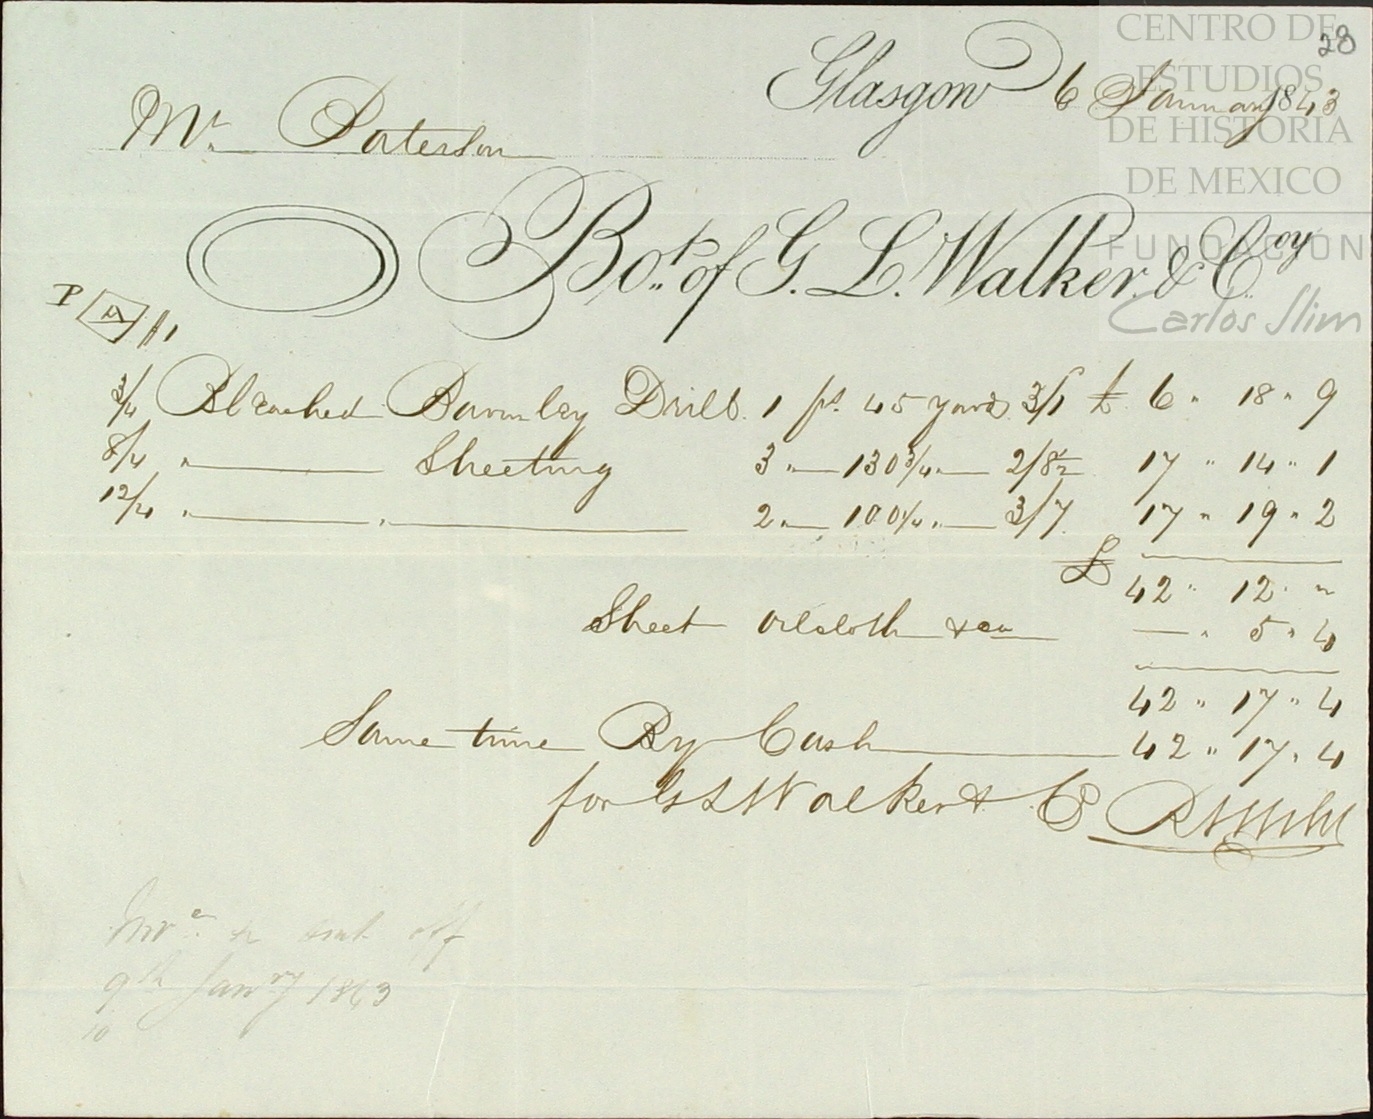 28
CENTRO DE
ESTUDIOS
DE HISTORIA
DE MEXICO
FUNDACIÓN
Carlos Slim
Glasgow 6 January 1843
Mr. Paterson
Bot. of G. L. Walker & Coy.
P
3/4 Bleached Barnsley Drill. 1 ps. 45 yards 3/1 £ 6 " 18 " 9
8/4 " Sheeting 3 " 130 3/4 " 2/8 1/2 17 " 14 " 1
12/4 " " 2 " 100 1/4 " 3/7 17 " 19 " 2
£ 42 " 12 "
Sheet oilcloth &ca — " 5 " 4
42 " 17 " 4
Same time By Cash 42 " 17 " 4
for G L Walker & Co
off
9th Jany
10